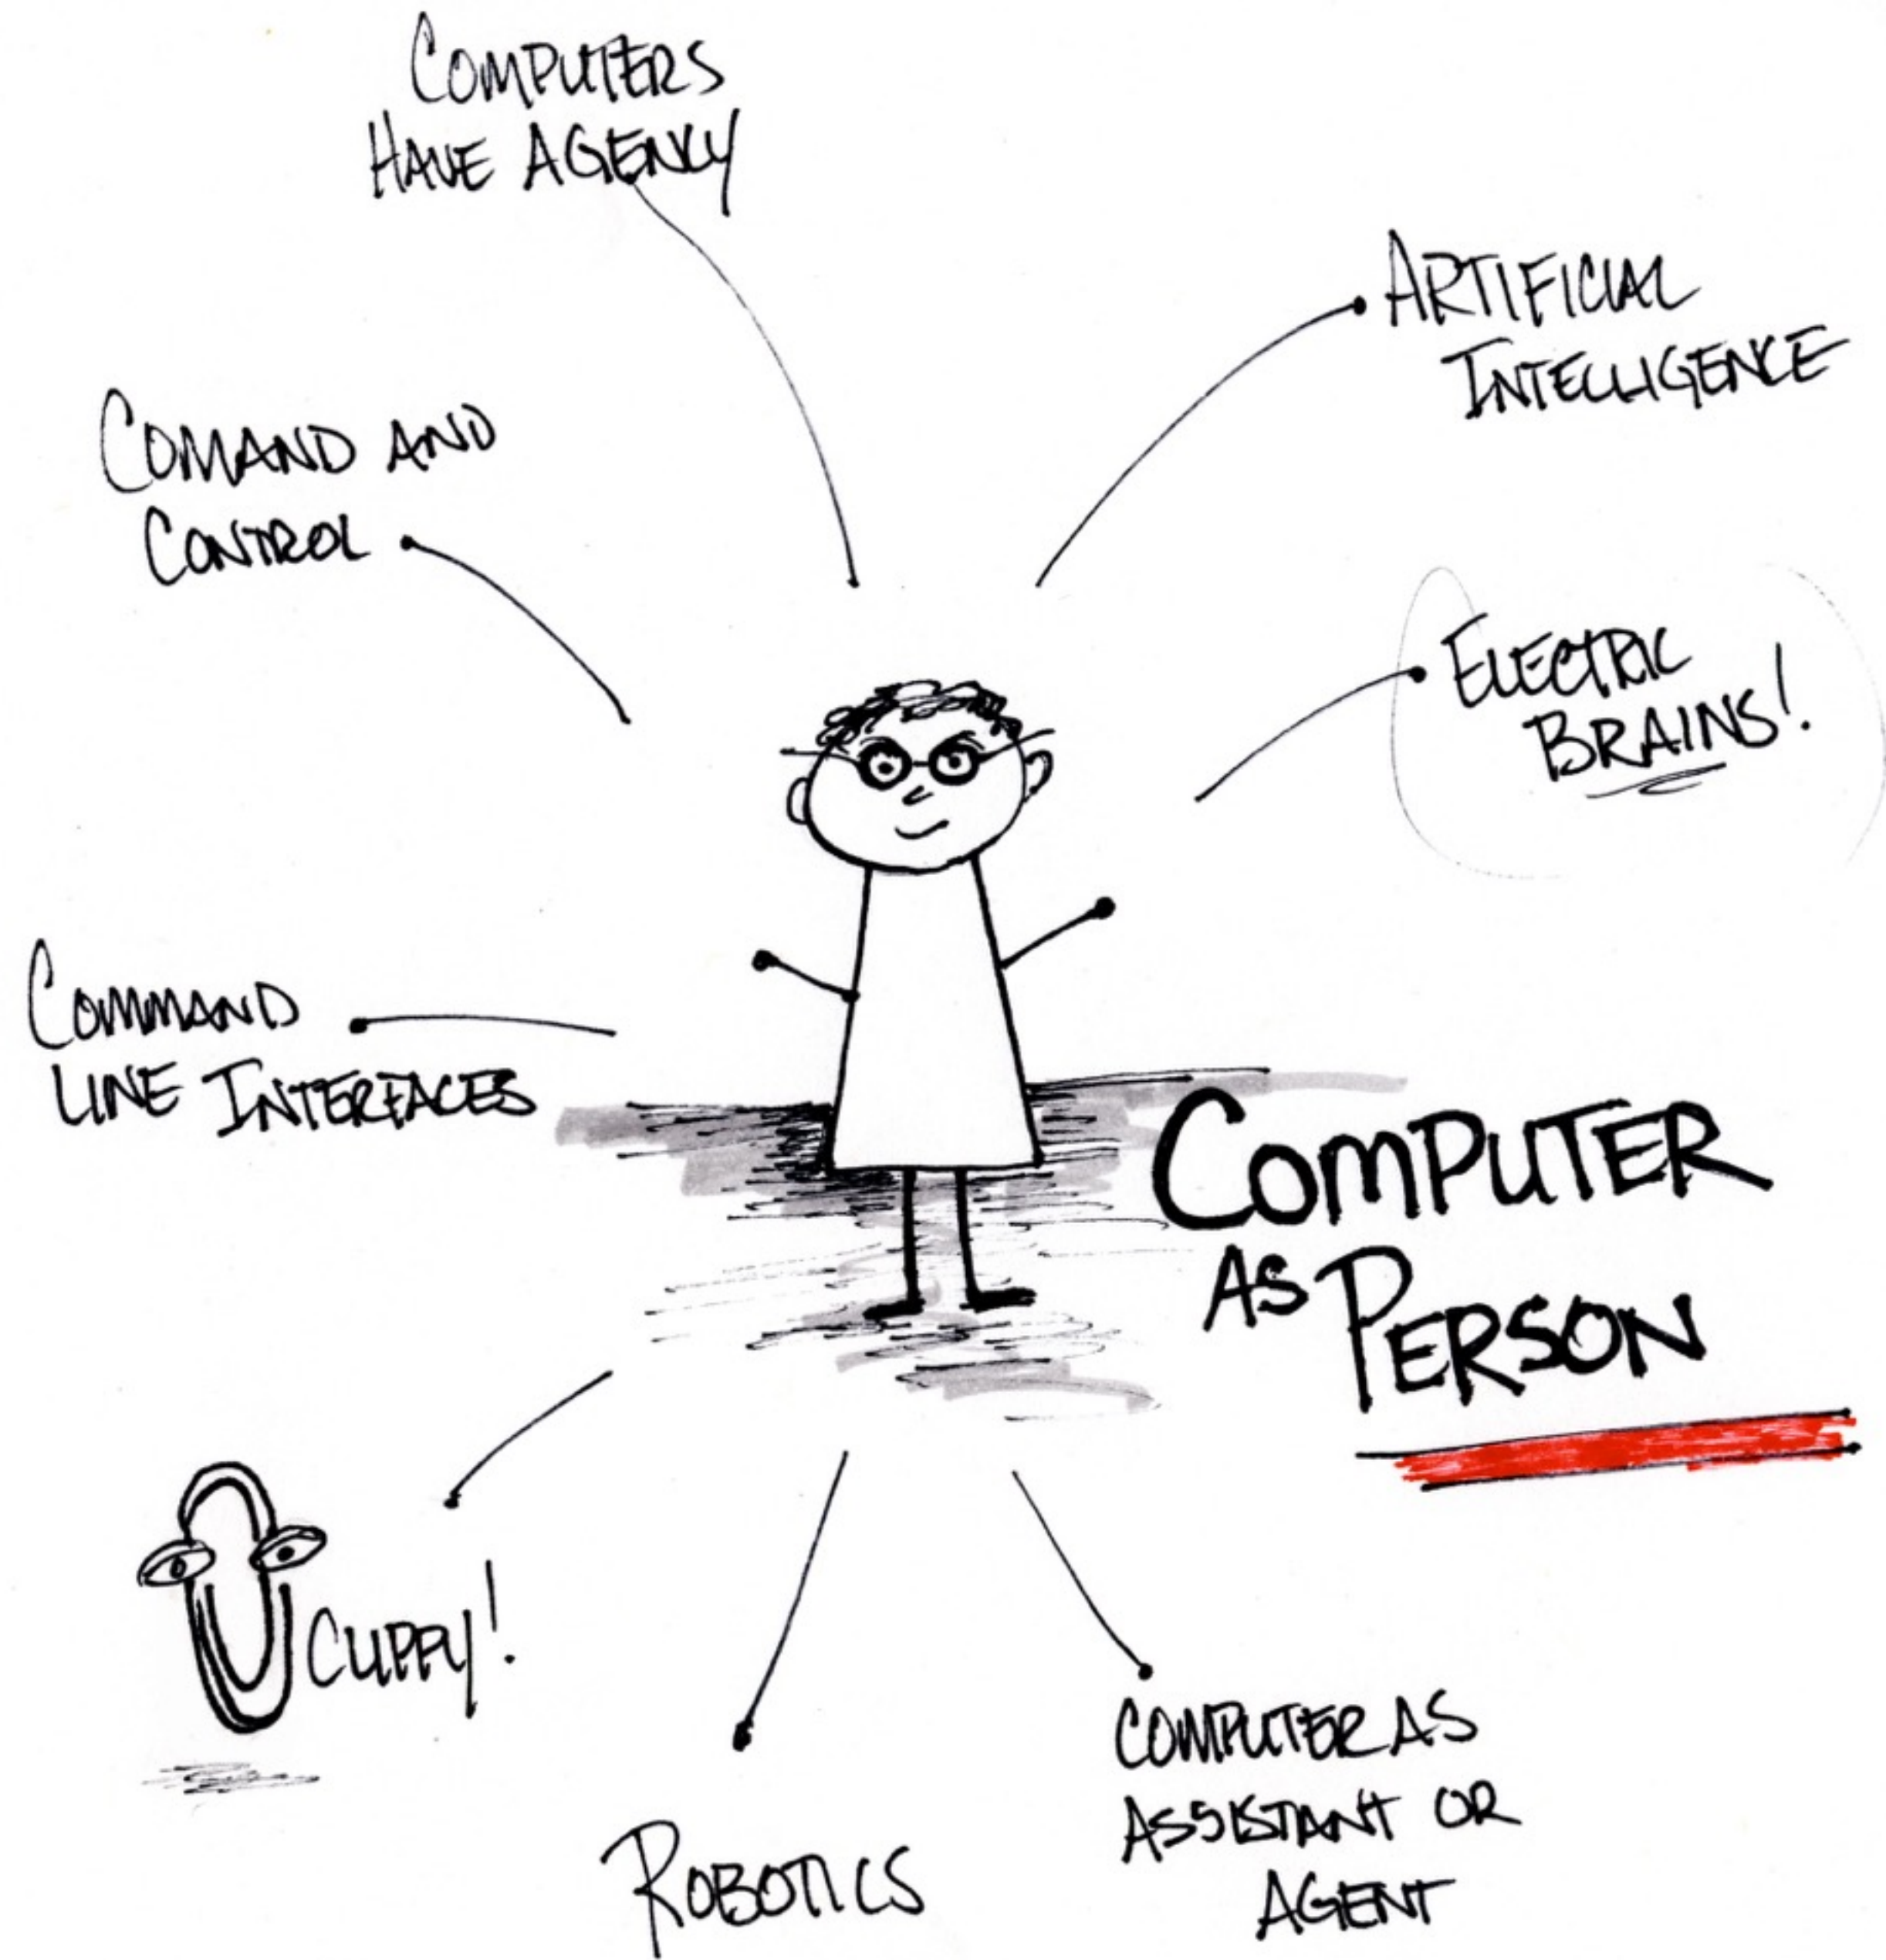 COMPUTERS
HAVE AGENCY
ARTIFICIAL
INTELLIGENCE
COMAND AND
CONTROL
ELECTRIC
BRAINS!
COMMAND
LINE INTERFACES
COMPUTER
AS PERSON
CLIPPY!
ROBOTICS
COMPUTER AS
ASSISTANT OR
AGENT